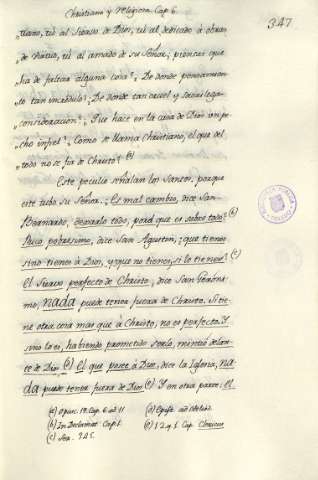 Christiana y Religiosa. Cap. 6.
347
„tiano, tu al Siervo de Dios, tu al dedicado à obras
„de virtud, tu al amado de su Señor; piensas que
„ha de faltar alguna cosa? De donde pensamien-
„to tan incredulo? De donde tan cruel y sacrilega
„consideracion? Que hace en la casa de Dios un pe-
„cho infiel? Como se llama Christiano, el que del
„todo no se fia de Christo? (a)
Este peculio señalan los Santos, porque
este todo su Señor. Es mal cambio, dice San
Bernardo, dexarlo todo, por el que es sobre todo? (b)
Rico pobrisimo, dice San Agustin, que tienes
sino tienes à Dios, y que no tienes, si lo tienes? (c)
El Siervo perfecto de Christo, dice San Geroni-
mo, nada puede tener fuera de Christo. Si tie-
ne otra cosa mas que à Christo, no es perfecto. Y
sino lo es, habiendo prometido serlo, mintió delan-
te de Dios (d) El que posee à Dios, dice la Iglesia, na-
da puede tener fuera de Dios (e) Y en otra parte: El
(a) Opusc. 18. Cap. 6. et 11
(b) In Declamat. Cap. 1.
(c) Ser. 245.
(d) Epist. ad Heliod.
(e) 12. q. 1. Cap. Clericus
BIBLIOTECA PUBLICA
TOLEDO